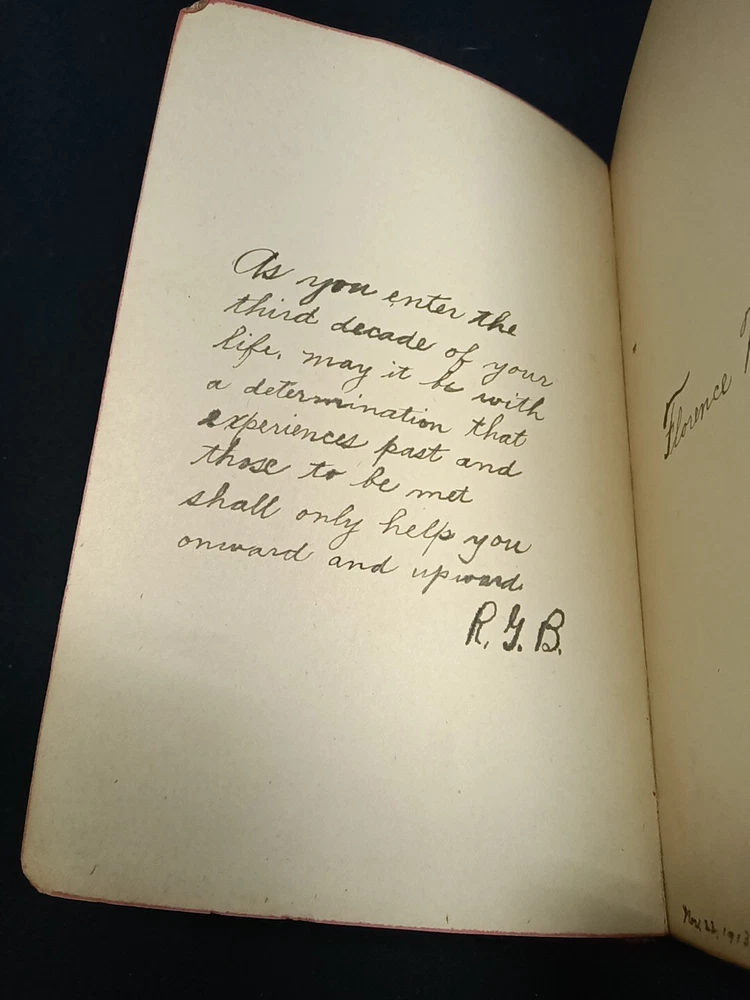 As you enter the
third decade of your
life, may it be with
a determination that
experiences past and
those to be met
shall only help you
onward and upward.
R. G. B.
Florence
Nov. 22, 191